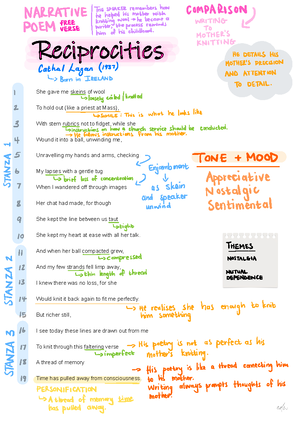 NARRATIVE
POEM
FREE
VERSE
The speaker remembers how
he helped his mother with
knitting wool + he became a
of his childhood.
COMPARISON
WRITING
TO
MOTHER'S
KNITTING
HE DETAILS HIS
MOTHER'S PRECISION
AND ATTENTION
TO DETAIL.
Reciprocities
Cathal Lagan (1937)
Born in IRELAND
STANZA 1
1 She gave me skeins of wool
loosely coiled / knotted
2 To hold out (like a priest at Mass),
SIMILE - This is what he looks like
3 With stern rubrics not to fidget, while she
instructions on how a church service should be conducted.
instructions from his mother.
4 Wound it into a ball, unwinding me,
5 Unravelling my hands and arms, checking
6 My lapses with a gentle tug
brief loss of concentration
7 When I wandered off through images
8 Her chat had made, for though
Enjambment
as skein
and speaker
unwind
TONE + MOOD
Appreciative
Nostalgic
Sentimental
9 She kept the line between us taut
tight
10 She kept my heart at ease with all her talk.
STANZA 2
11 And when her ball compacted grew,
compressed
12 And my few strands fell limp away,
thin length of thread
13 I knew there was no loss, for she
14 Would knit it back again to fit me perfectly.
He realises she has enough to knit
him something
THEMES
NOSTALGIA
MUTUAL
DEPENDENCE
STANZA 3
15 But richer still,
16 I see today these lines are drawn out from me
17 To knit through this faltering verse
imperfect
His poetry is not as perfect as his
mother's knitting.
18 A thread of memory.
His poetry is like a thread connecting him
to his mother.
19 Time has pulled away from consciousness.
PERSONIFICATION
A strand of memory time
has pulled away
Writing always prompts thoughts of his
mother